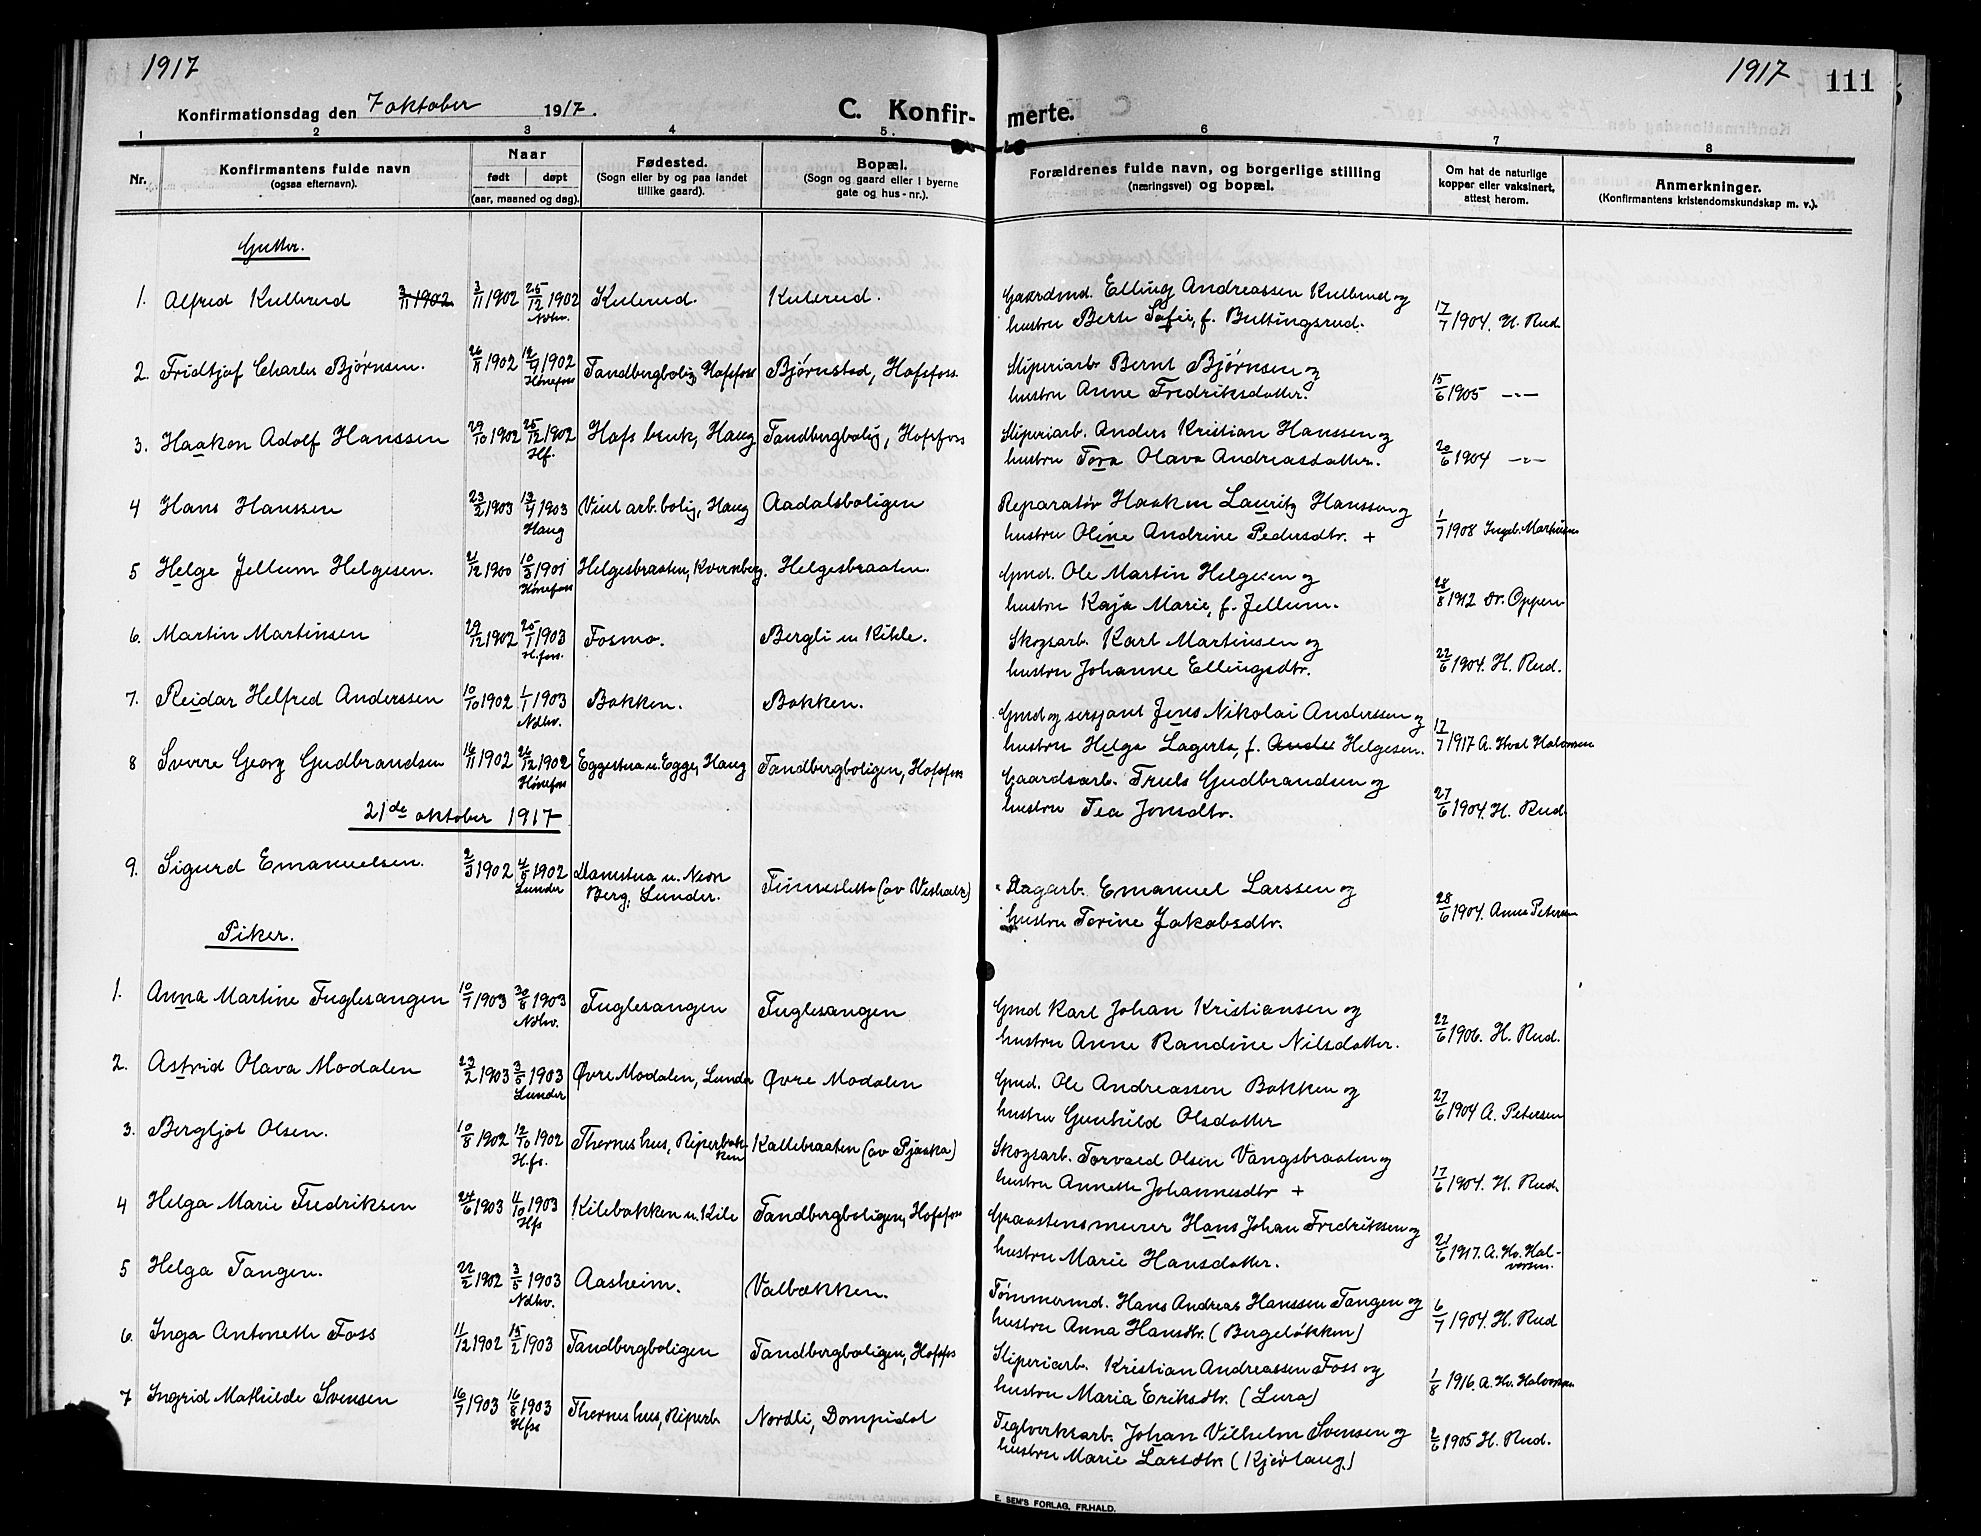 1917
1917 111
Konfirmationsdag den 7 oktober 1917.
C. Konfir- merte.
1 2 3 4 5. 6 7 8
Nr.
Konfirmantens fulde navn
(ogsaa efternavn).
Naar
født døpt
(aar, maaned og dag).
Fødested.
(Sogn eller by og paa landet
tillike gaard).
Bopæl.
(Sogn og gaard eller i byerne
gate og hus-nr.).
Forældrenes fulde navn, og borgerlige stilling
(næringsvei) og bopæl.
Om hat de naturlige
kopper eller vaksinert,
attest herom.
Anmerkninger.
(Konfirmantens kristendomskundskap m. v.).
Gutter.
1. Alfred Kullerud 3/11 1902 3/11 1902 25/12 1902 Kulerud. Kulerud. Gaardmd. Elling Andreassen Kullerud og
Ndhv. hustru Berte Sofie, f. Buttingsrud. 17/7 1904. H. Rud.
2. Fridtjof Charles Bjørnsen. 26/8 1902 12/9 1902 Tandbergbolig Hofsfoss Bjørnstad, Hofsfoss. Sliperiarb. Bernt Bjørnsen og
Hønefoss hustru Anne Fredriksdatter. 15/6 1905 -"-
3. Haakon Adolf Hanssen 29/10 1902 25/12 1902 Hofs bruk, Haug Tandbergbolig, Hofsfoss Sliperiarb. Anders Kristian Hanssen og
Hf. hustru Tora Olava Andreasdatter. 20/6 1904 -"-
4 Hans Hanssen 23/2 1903 13/4 1903 Viul arb.bolig, Haug Aadalsboligen Reparatør Haakon Lauritz Hanssen og
Haug hustru Oline Andrine Pedersdtr. + 1/7 1908 Ingeb. Martinsen
5 Helge Jellum Helgesen. 21/12 1900 10/3 1901 Helgesbraaten, Kvernberg. Helgesbraaten. Gmd. Ole Martin Helgesen og
Hønefoss hustru Kaja Marie, f. Jellum. 28/8 1912 Dr. Oppen
6. Martin Martinsen 29/12 1902 25/1 1903 Fosmo. Bergli u Kihle. Skogsarb. Karl Martinsen og
H.foss. hustru Johanne Ellingsdtr. 22/6 1904. H. Rud.
7. Reidar Helfred Anderssen 10/10 1902 1/1 1903 Bakken. Bakken. Gmd og sersjant Jens Nikolai Anderssen og
Ndhv. hustru Helga Lagerta, f. Ander Helgesen. 17/7 1917 A. Hval Halvorsen
8 Sverre Georg Gudbrandsen 16/11 1902 26/12 1902 Eggestua u. Egge, Haug Tandbergboligen, Hofsfoss Gaardsarb. Truls Gudbrandsen og
Hønefoss hustru Tea Jonsdtr. 27/6 1904. H. Rud.
21de oktober 1917
9. Sigurd Emanuelsen. 2/3 1902 4/5 1902 Damstua u. Nedre Finneslette (av Veshalz) Dagarb. Emanuel Larssen og
Lunder Berg, Lunder. hustru Torine Jakobsdtr. 28/6 1904. Anna Petersen
Piker.
1. Anna Martine Fuglesangen 10/7 1903 30/8 1903 Fuglesangen Fuglesangen Gmd Karl Johan Kristiansen og
Ndhv. hustru Anne Randine Nilsdatter. 22/6 1906. H. Rud.
2. Astrid Olava Modalen 23/2 1903 3/5 1903 Øvre Modalen, Lunder Øvre Modalen Gmd. Ole Andreassen Bakken og
Lunder hustru Gunhild Olsdatter 27/6 1904 A. Petersen
3. Bergljot Olsen. 10/8 1902 12/10 1902 Thornes hus, Riperbak- Kallebraaten (av Pjaaka) Skogsarb. Torvald Olsen Vangsbraaten og
H.fs. ken hustru Annette Johannesdtr + 17/6 1904. H. Rud.
4 Helga Marie Fredriksen 24/6 1903 4/10 1903 Kilebakken u. Kile Tandbergboligen, Hofsfoss Graastensmurer Hans Johan Fredriksen og
Hfs hustru Marie Hansdatter. 21/6 1917. A. Hv. Hal-
vorsen.
5 Helga Tangen. 22/2 1902 3/5 1903 Aasheim. Valbækken. Tømmermd. Hans Andreas Hanssen Tangen og
Ndhv. hustru Anna Hansdtr. (Bergeløkken) 6/7 1904. H. Rud
6. Inga Antonette Foss 11/12 1902 15/2 1903 Tandbergboligen Tandbergboligen, Hofsfos Sliperiarb. Kristian Andreassen Foss og
hustru Maria Eriksdtr. (Lura) 1/8 1916. A. Hv. Halvorsen
7 Ingrid Mathilde Svensen 16/7 1903 16/8 1903 Thornes hus, Riperb. Nordli, Dompidal Teglverksarb. Johan Vilhelm Svensen og
Hfss hustru Marie Larsdtr (Kjevlaug) 2/6 1905 H. Rud.
E. SEM'S FORLAG, FR.HALD.